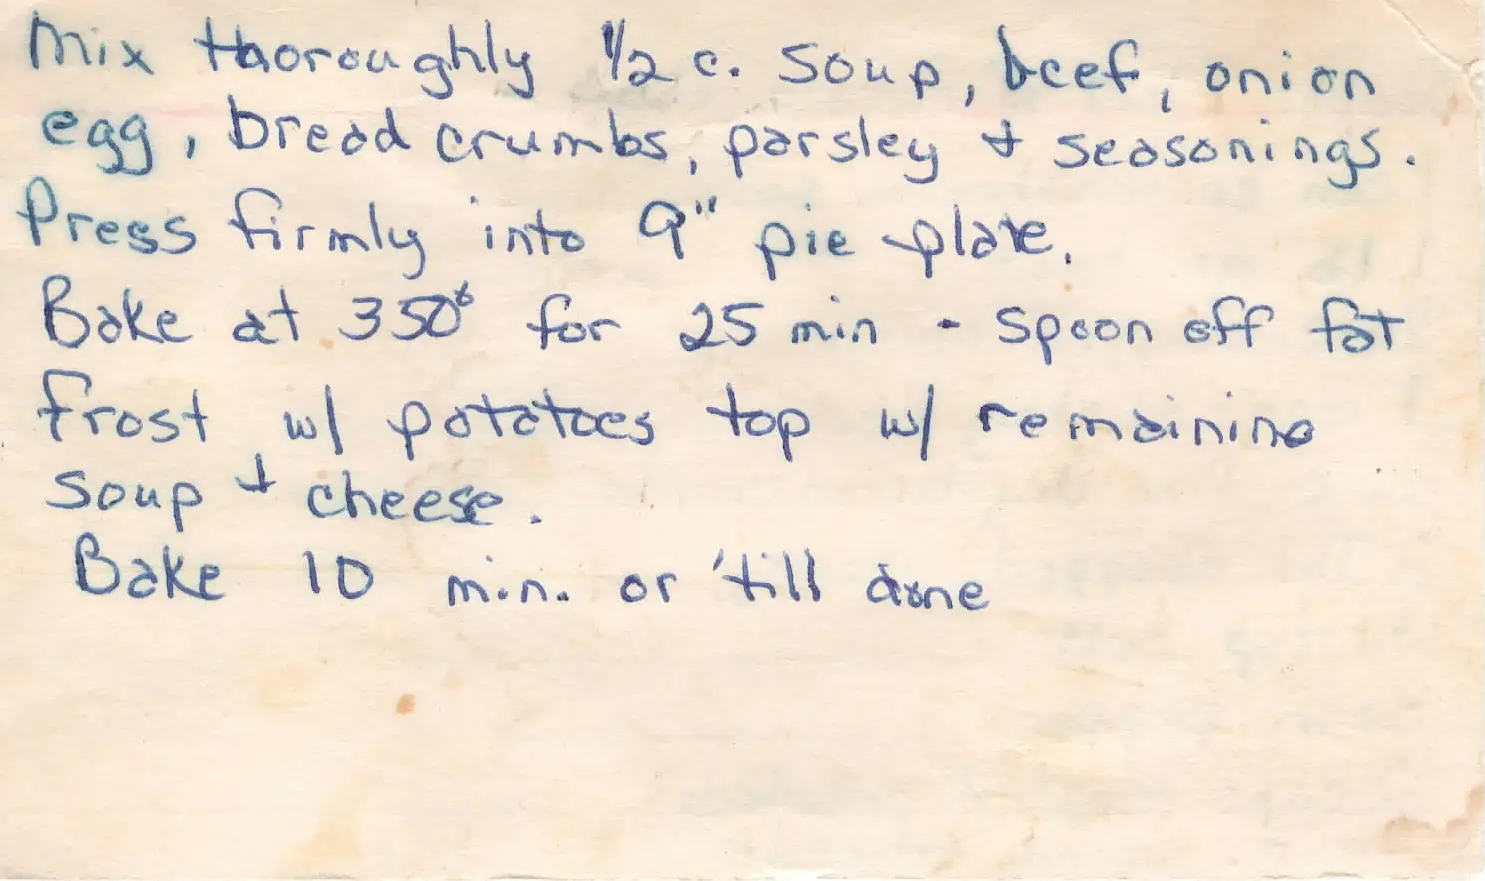 Mix thoroughly 1/2 c. soup, beef, onion
egg, bread crumbs, parsley + seasonings.
Press firmly into 9" pie plate.
Bake at 350° for 25 min - spoon off fat
frost w/ potatoes top w/ remaining
soup + cheese.
Bake 10 min. or 'till done